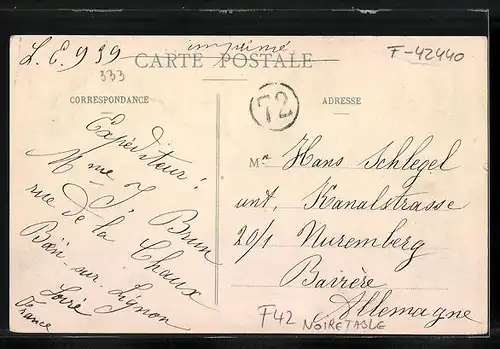 L. E. 939
imprimé
F-42440
333
CARTE POSTALE
CORRESPONDANCE
72
ADRESSE
Expéditeur:
Mme J. Brun
rue de la Chaux
Boën-sur-Lignon
Loire
France
Mr Hans Schlegel
unt. Kanalstrasse
20/1 Nuremberg
Bavière
Allemagne
F42
NOIRETABLE